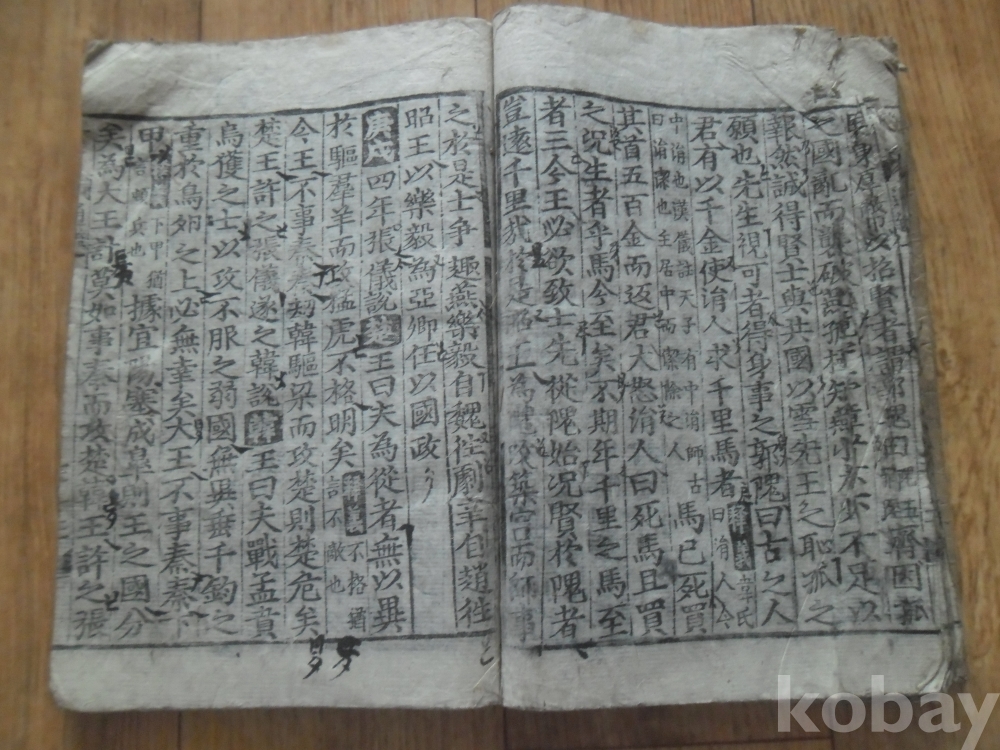 招賢者謂郭隗曰齊因孤
之國亂而襲破燕孤極知燕小力少不足以
報然誠得賢士與共國以雪先王之恥孤之
願也先生視可者得身事之郭隗曰古之人
君有以千金使涓人求千里馬者韋氏曰涓人今
中涓也漢儀註天子有中涓師古曰涓潔也主居中而潔除之人馬已死買
其首五百金而返君大怒涓人曰死馬且買
之況生者乎馬今至矣不期年千里之馬至
者三今王必欲致士先從隗始况賢於隗者
豈遠千里哉於是昭王為隗改築宮而師事
之於是士爭趣燕樂毅自魏徃劇辛自趙徃
昭王以樂毅為亞卿任以國政
四年張儀說楚王曰夫為從者無以異
於驅羣羊而攻猛虎不格明矣不格猶言不敵也
今王不事秦秦劫韓驅梁而攻楚則楚危矣
楚王許之張儀遂之韓說韓王曰夫戰孟賁
烏獲之士以攻不服之弱國無異垂千鈞之
重於鳥卵之上必無幸矣大王不事秦秦下
甲下甲猶言頓兵也據宜陽塞成臯則王之國分
矣為大王計莫如事秦而攻楚韓王許之張
kobay